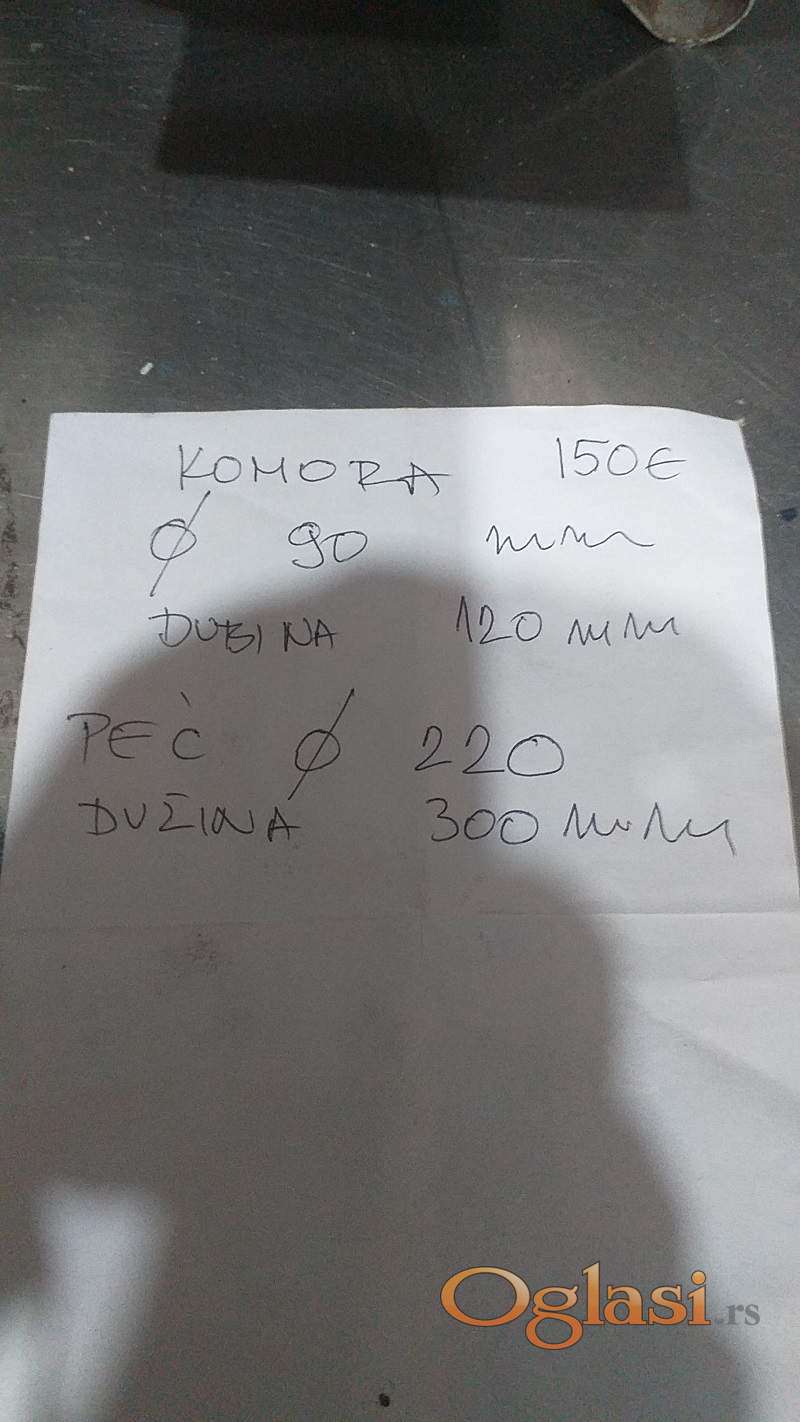 KOMORA 150€
Ø 90 mm
DUBINA 120 mm
PEĆ Ø 220
DUŽINA 300 mm
Oglasi.rs